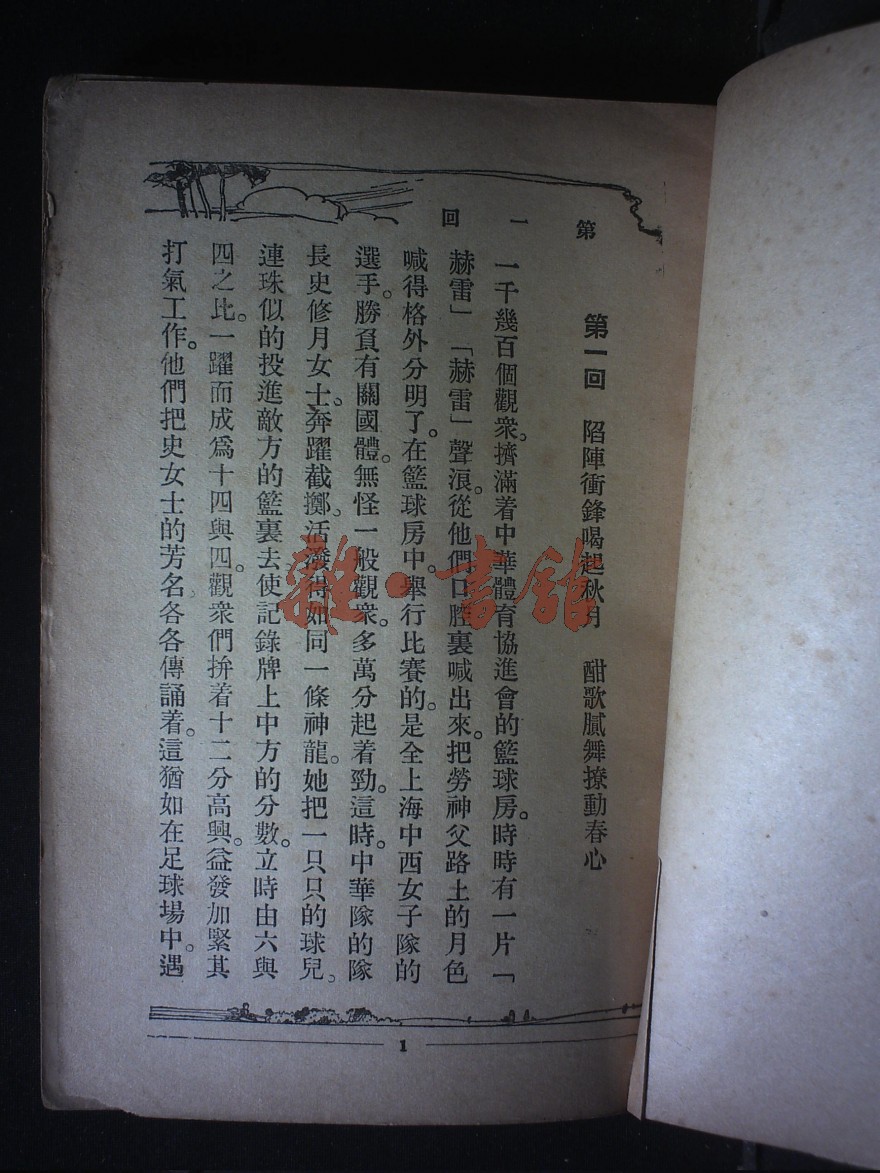 第一回
第一回　陷陣衝鋒喝起秋月　酣歌膩舞撩動春心
一千幾百個觀衆。擠滿着中華體育協進會的籃球房。時時有一片「
赫雷」「赫雷」聲浪。從他們口腔裏喊出來。把勞神父路上的月色
喊得格外分明了。在籃球房中。舉行比賽的。是全上海中西女子隊的
選手。勝負有關國體。無怪一般觀衆。多萬分起着勁。這時。中華隊的隊
長史修月女士。奔躍截擲。活潑得如同一條神龍。她把一只只的球兒。
連珠似的投進敵方的籃裏去使記錄牌上中方的分數。立時由六與
四之比。一躍而成爲十四與四。觀衆們拚着十二分高興。益發加緊其
打氣工作。他們把史女士的芳名各各傳誦着。這猶如在足球場中。遇
1
雜·書館